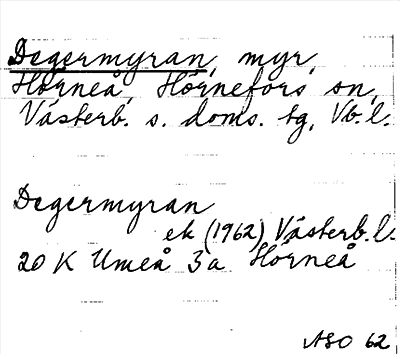 Degermyran, myr,
Hörneå, Hörnefors sn,
Västerb. s. doms. tg, Vb. l.
Degermyran
ek (1962) Västerb. l.
20 K Umeå 3a Hörneå
ASO 62